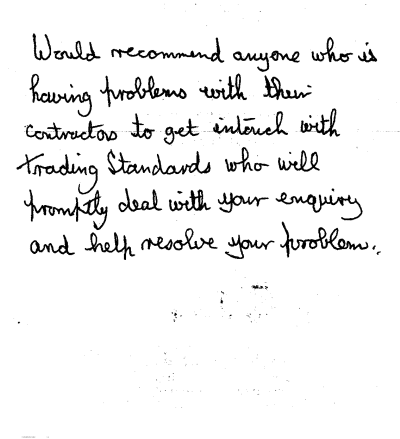 Would recommend anyone who is
having problems with their
contractors to get intouch with
trading Standards who will
promptly deal with your enquiry
and help resolve your problem.